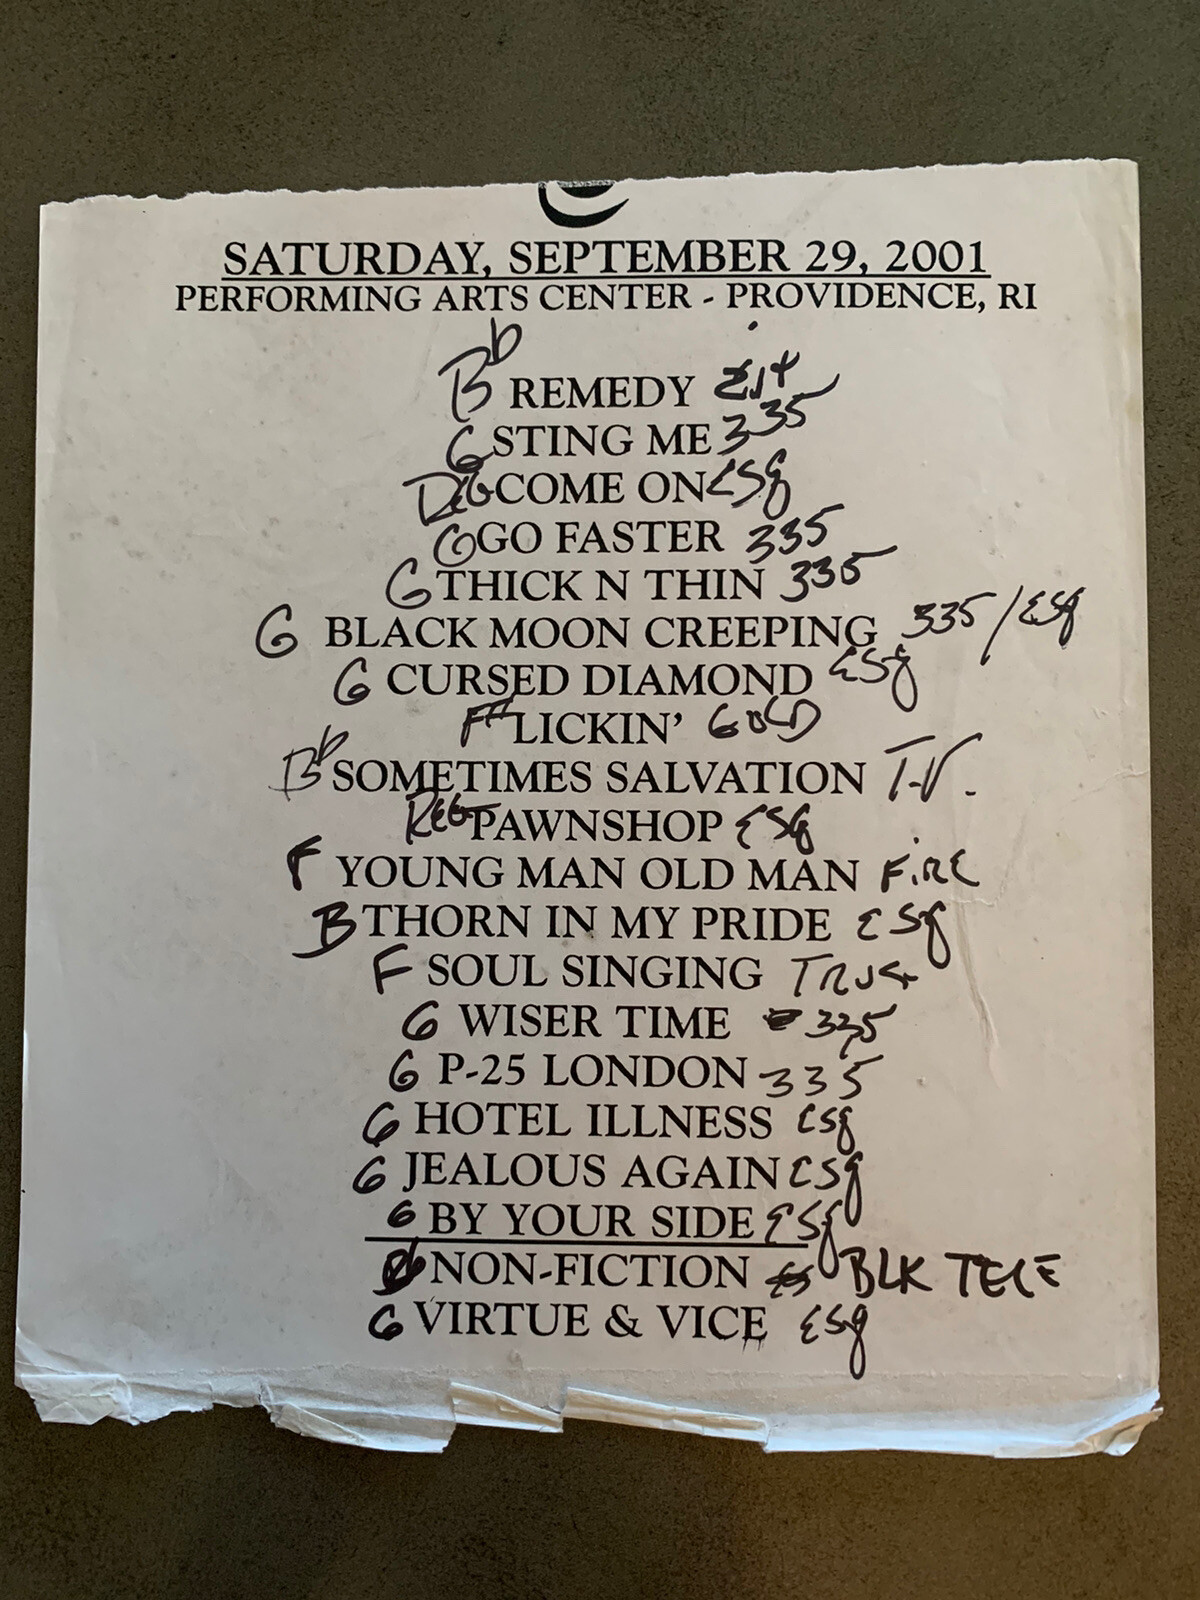 SATURDAY, SEPTEMBER 29, 2001
PERFORMING ARTS CENTER - PROVIDENCE, RI
Bb REMEDY
G STING ME 335
REG COME ON ESG
G GO FASTER 335
G THICK N THIN 335
G BLACK MOON CREEPING 335/ESG
G CURSED DIAMOND ESG
F# LICKIN' GOLD
Bb SOMETIMES SALVATION T.V.
REG PAWNSHOP ESG
F YOUNG MAN OLD MAN FiRE
B THORN IN MY PRIDE ESG
F SOUL SINGING TRUSS
G WISER TIME 335
G P-25 LONDON 335
G HOTEL ILLNESS ESG
G JEALOUS AGAIN ESG
G BY YOUR SIDE ESG
NON-FICTION BLK TELE
G VIRTUE & VICE ESG